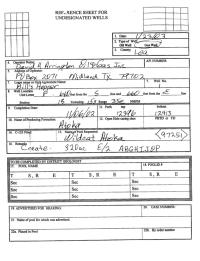 REFERENCE SHEET FOR
UNDESIGNATED WELLS
1. Date: 1/23/03
2. Type of Well
Oil Well Gas Well
3. County: Lea
4. Operator Name
David H Arrington Oil & Gas Inc
API NUMBER
5. Address of Operator
PO Box 2071 Midland Tx 79702
6. Lease name or Unit Agreement Name
7. Well No.
8. Well Location
Unit Letter feet from the S line and 660 feet from the line
Section 18 Township 15S Range 35E NMPM
9. Completion Date
11. Perfs top bottom
11/06/02 12396 12413
10. Name of Producing Formation
12. Open Hole casing shoe PBTD or TD
Atoka
13. C-123 Filed
14. Name of Pool Requested
Wildcat Atoka (97251)
15. Remarks
Create 320ac E/2 ABGHIJOP
TO BE COMPLETED BY DISTRICT GEOLOGIST
17. POOL NAME
18. POOL ID #
T S, R S T S, R S
Sec Sec
Sec Sec
Sec Sec
19. ADVERTISED FOR HEARING
20. CASE NUMBER
21. Name of pool for which was advertised
22a. Placed in Pool
22b. By order number